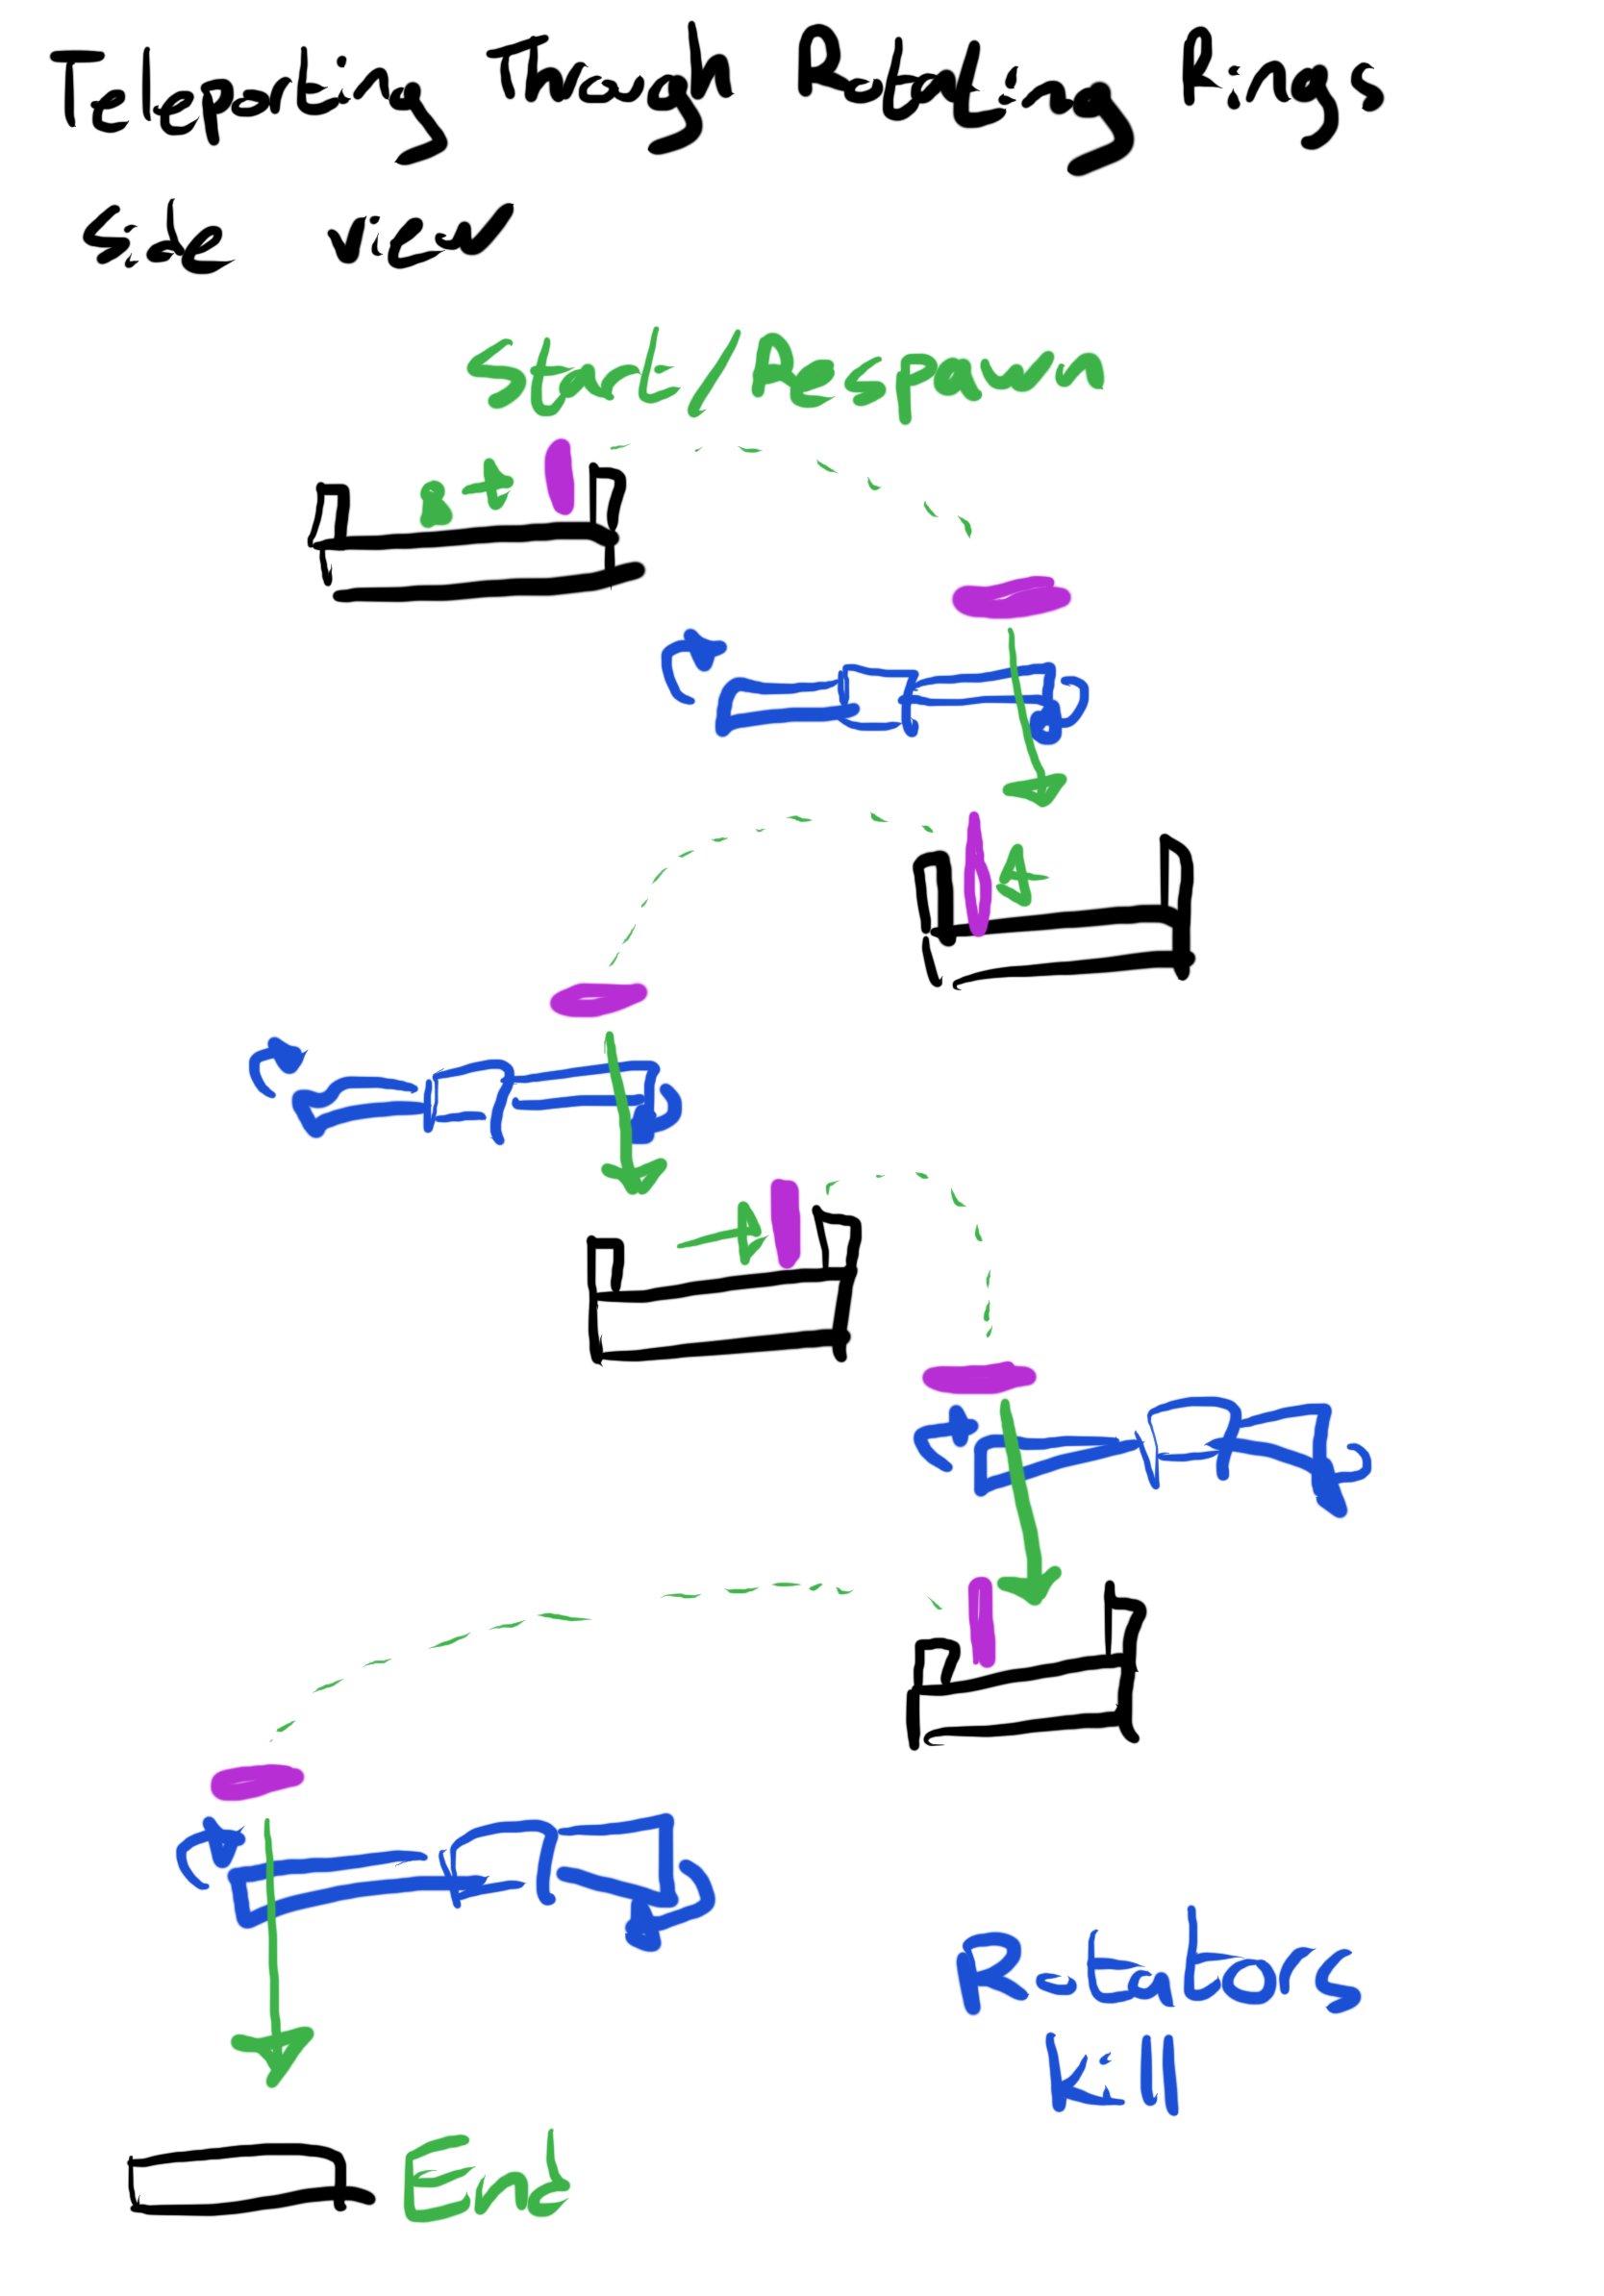 Teleporting Though Rotating Rings
Side view
Start/Respawn
Rotators
Kill
End